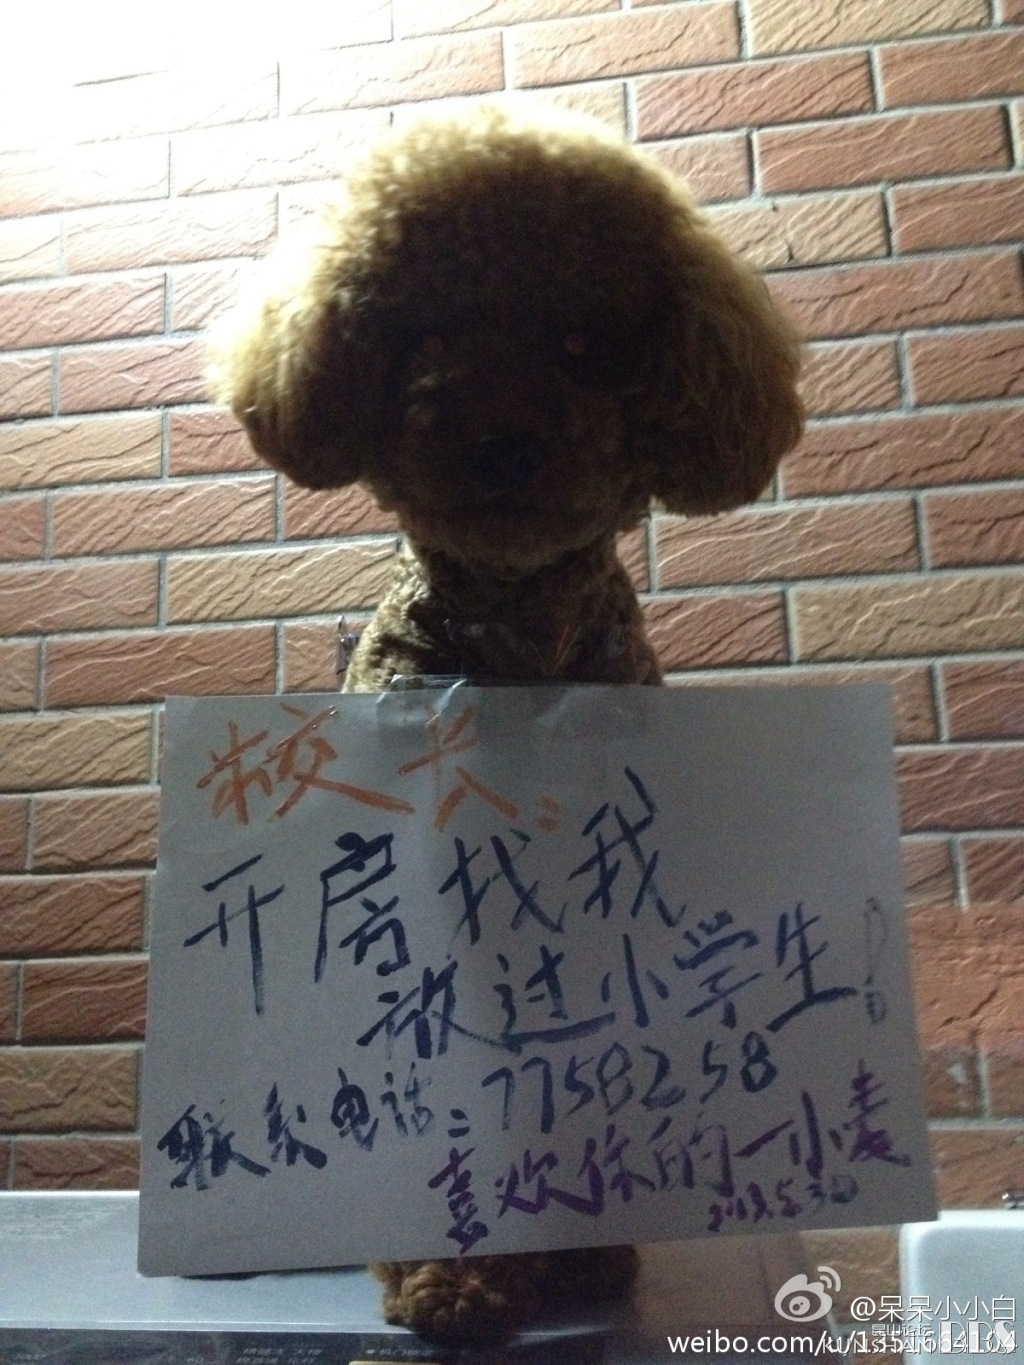 校长：
开房找我
放过小学生！
联系电话：7758258
喜欢你的一小麦
2013.5.30
@呆呆小小白
weibo.com/u/1351664104
昆山论坛
KUNSHAN BBS